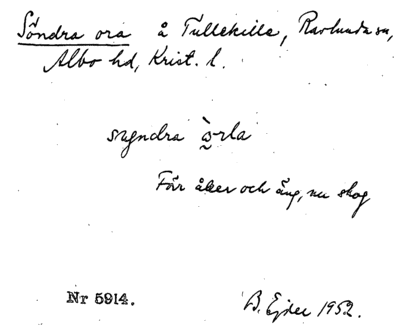 Söndra ora å Tullekilla, Ravlunda sn,
Albo hd, Krist. l.
sυgndra òrla
Förr åker och äng, nu skog
Nr 5914.
B. Ejder 1952.